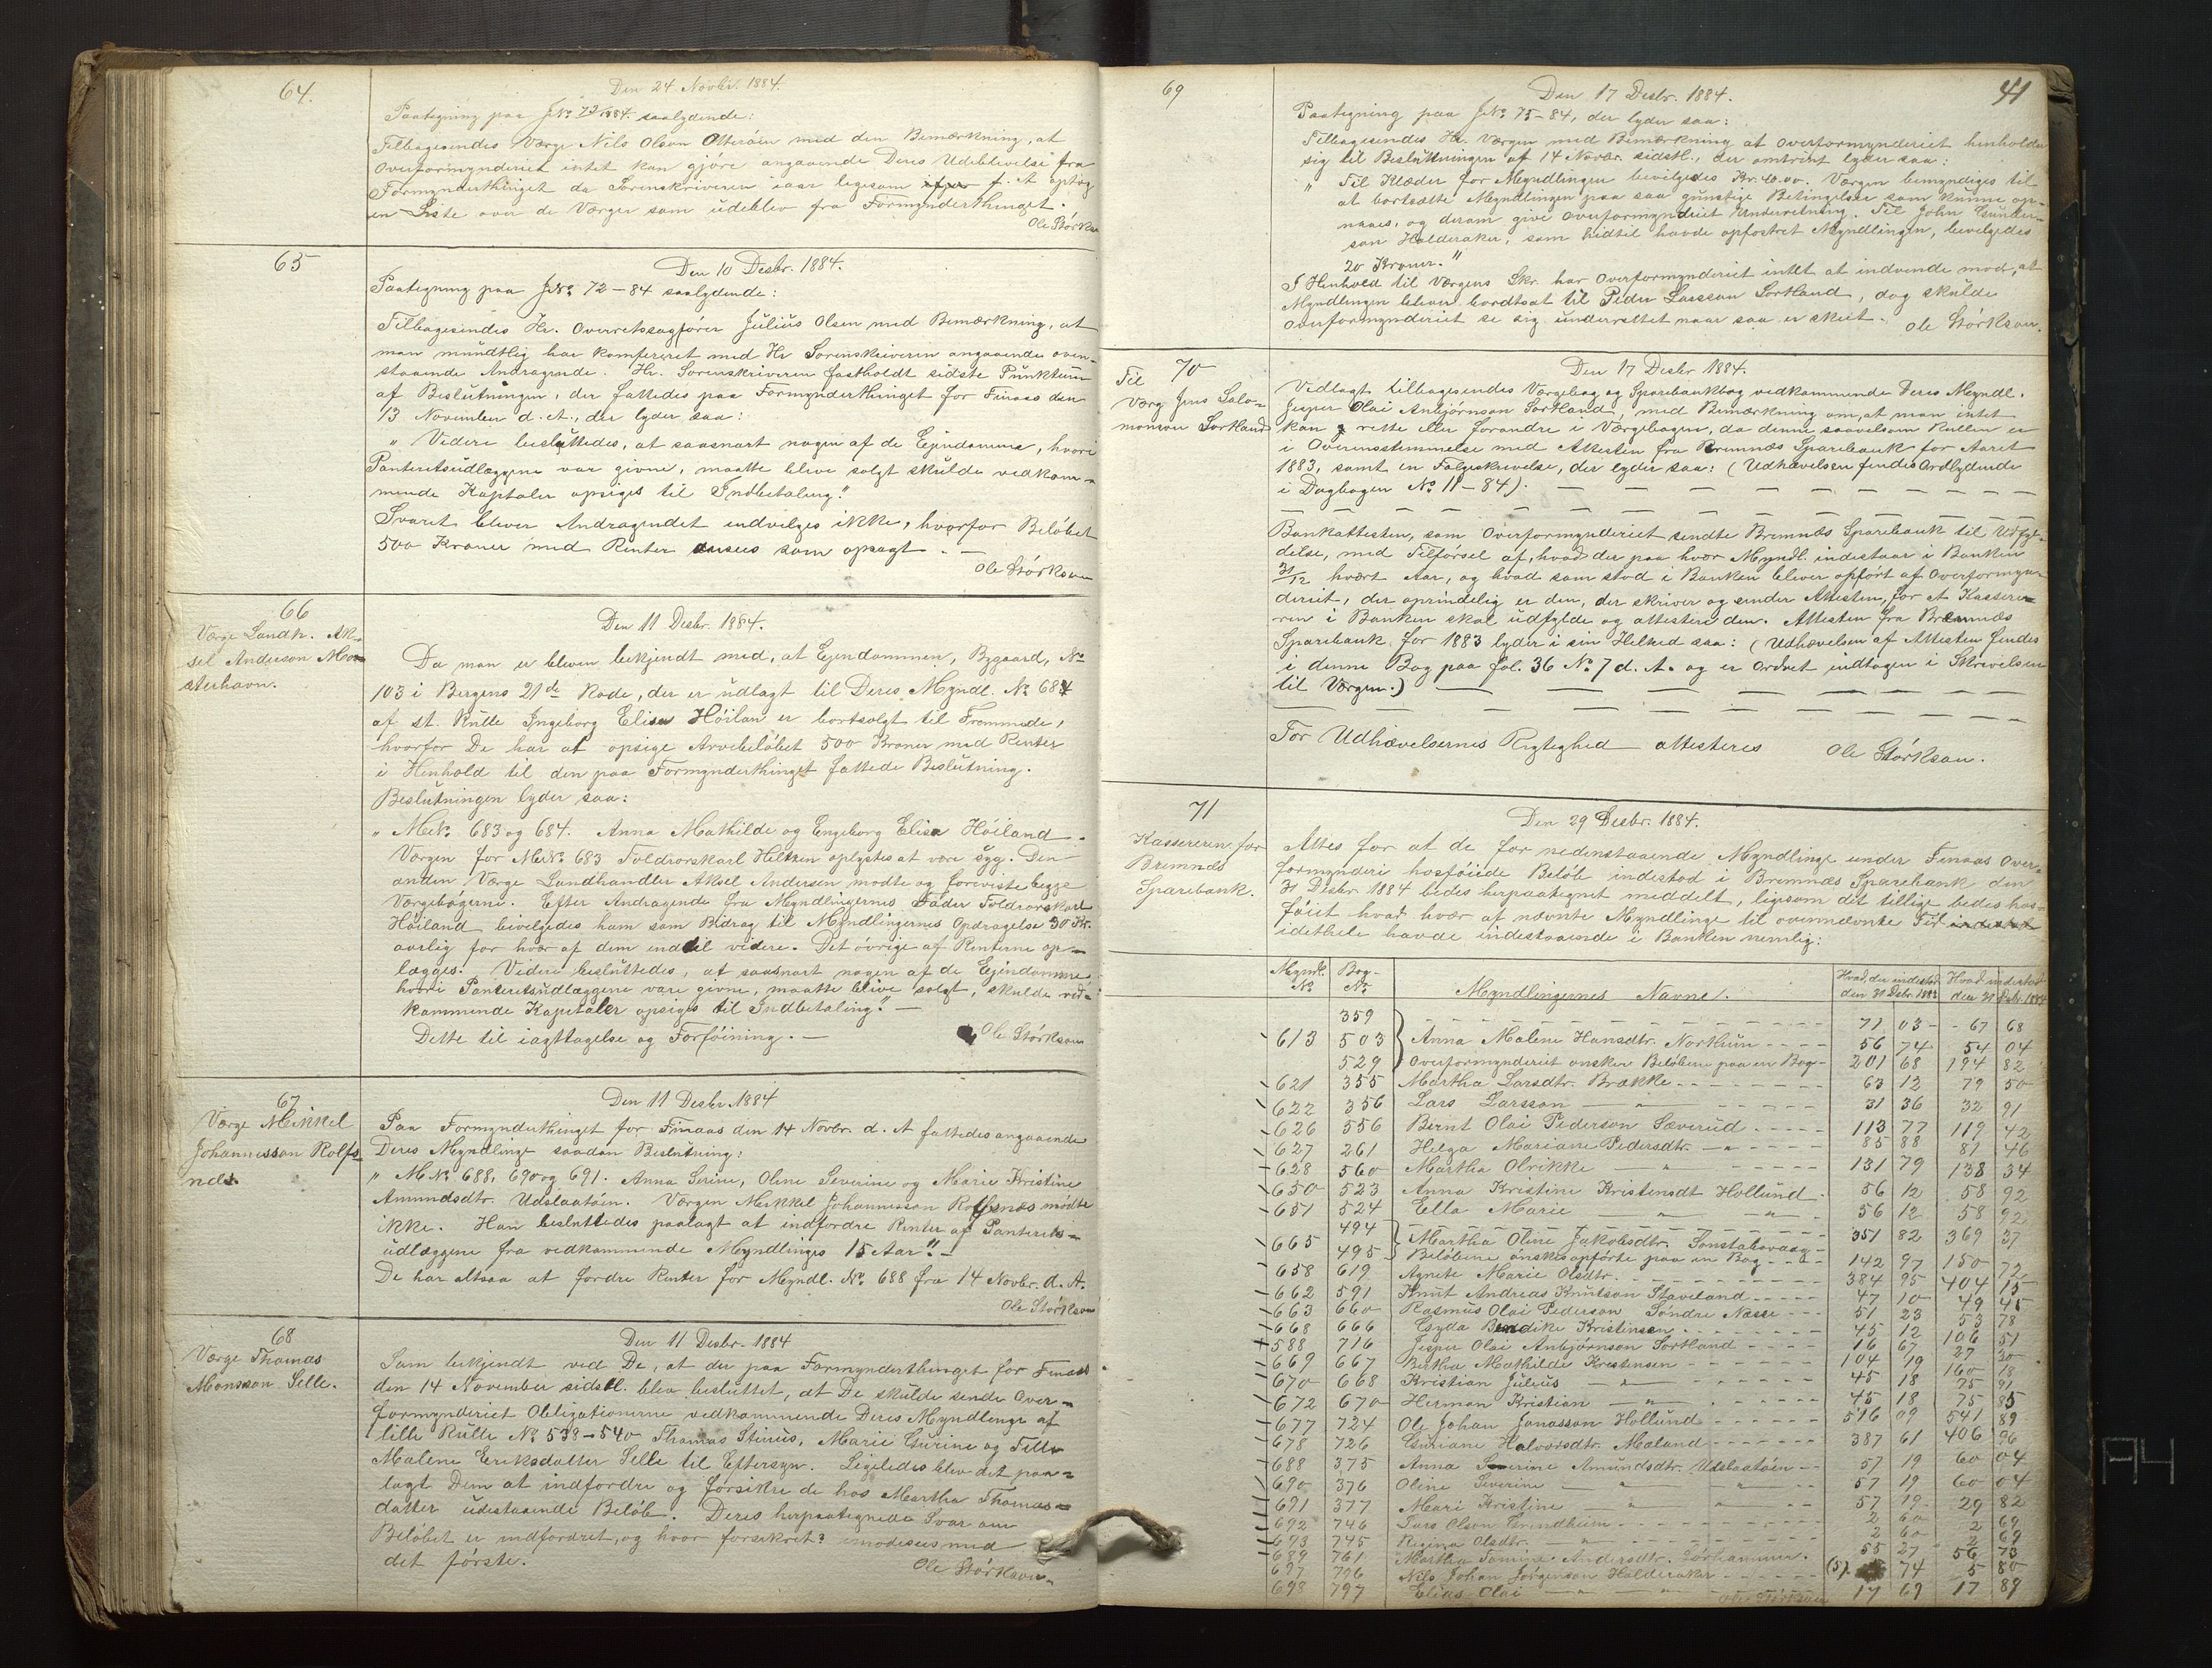 64.
Den 24 Novbr. 1884.
Paategning paa JNo 73/1884 saalydende:
Tilbagesendes Værge Nils Olson Otteröen med den Bemærkning, at
Overformynderiet intet kan gjöre angaaende Deres Udeblivelse fra
Formynderthinget da Sorenskriveren iaar ligesom f. A optog
en Liste over de Værger som udeblev fra Formynderthinget.
Ole Störkson
65
Den 10 Desbr. 1884.
Paategning paa JNo 72-84 saalydende:
Tilbagesendes Hr. Overretssagförer Julius Olsen med Bemærkning, at
man mündtlig har konfereret med Hr Sorenskriveren angaaende oven-
staaende Andragende. Hr. Sorenskriveren fastholdt sidste Punktum
af Beslutningen, der fattedes paa Formynderthinget for Finaas den
13 November d. A., der lyder saa:
„ Videre besluttedes, at saasnart nogen af de Ejendomme, hvori
Panteretsudlæggene var givne, maatte blive solgt skulde vedkom-
mende Kapitaler opsiges til Indbetaling."
Svaret bliver Andragendet indvilges ikke, hvorfor Belöbet
500 Kroner med Renter ansees som opsagt. —
Ole Störkson
66
Værge Landh. Ak-
sel Anderson Mo-
sterhavn.
Den 11 Desbr. 1884.
Da man er bleven bekjendt med, at Ejendommen, Bygaard, No
103 i Bergens 21de Rode, der er udlagt til Deres Myndl. No 684
af st. Rulle Ingeborg Elisa Höilan er bortsolgt til Fremmede,
hvorfor De har at opsige Arvebelöbet 500 Kroner med Renter
i Henhold til den paa Formynderthinget fattede Beslutning.
Beslutningen lyder saa:
„ MNo. 683 og 684. Anna Mathilde og Engeborg Elisa Höiland.
Værgen for MNo. 683 Toldrorskarl Hilken oplystes at være syg. Den
anden Værge Landhandler Aksel Andersen mödte og foreviste begge
Værgebögerne. Efter Andragende fra Myndlingernes Fader Toldrorskarl
Höiland bevilgedes ham som Bidrag til Myndlingernes Opdragelse 30 Kr.
aarlig for hver af dem indtil videre. Det övrige af Renterne op-
lægges. Videre besluttedes, at saasnart nogen af de Ejendomme
hvori Panteretsudlæggene vare givne, maatte blive solgt, skulde ved-
kommende Kapitaler opsiges til Indbetaling." —
Dette til iagttagelse og Forföining. —
Ole Störkson
67
Værge Mikkel
Johannesson Rolfs-
næs.
Den 11 Desbr. 1884
Paa Formynderthinget for Finaas den 14 Novbr. d. A fattedes angaaende
Deres Myndlinge saadan Beslutning:
„ MNo. 688, 690 og 691. Anna Serine, Oline Severine og Marie Kristine
Amundsdtr. Udslaatöen. Værgen Mikkel Johannesson Rolfsnæs mödte
ikke. Han besluttedes paalagt at indfordre Renter af Panterets-
udlæggene fra vedkommende Myndlinges 15 Aar." —
De har altsaa at fordre Renter for Myndl. No. 688 fra 14 Novbr. d. A.
Ole Störkson
68
Værge Thomas
Monsson Selle.
Den 11 Desbr. 1884
Som bekjendt ved De, at der paa Formynderthinget for Finaas
den 14 November sidstl. blev besluttet, at De skulde sende Over-
formynderiet Obligationerne vedkommende Deres Myndlinge af
lille Rulle No 538-540 Thomas Stinius, Marie Gurine og
Malene Eriksdatter Selle til Eftersyn. Ligeledes blev det paa-
lagt Dem at indfordre og forsikre de hos Martha Thomas-
datter udestaaende Belöb. Deres herpaategnede Svar om
Belöbet er indfordret, og hvor forsikret? imödesees med
det förste.
Ole Störkson
41
69
Den 17 Desbr. 1884.
Paategning paa JNo 75-84, der lyder saa:
Tilbagesendes Hr. Værgen med Bemærkning at Overformynderiet henholder
sig til Beslutningen af 14 Novbr. sidstl., der omtrent lyder saa:
„ Til Klæder for Myndlingen bevilgedes Kr. 40.00. Værgen bemyndiges til
at bortsætte Myndlingen paa saa gunstige Betingelser som kunne op-
naaes, og derom give Overformynderiet Underretning. Til John Gunder-
son Halderaker, som hidtil havde opfostret Myndlingen, bevilgedes
20 Kroner."
I Henhold til Værgens Skr. har Overformynderiet intet at indvende mod, at
Myndlingen bliver bortsat til Peder Lassson Sortland, dog skulde
Overformynderiet se sig underrettet naar saa er skeet.
Ole Störkson.
70
Til
Værg Jens Salo-
monson Sortland
Den 17 Desbr 1884.
Vedlagt tilbagesendes Værgebog og Sparebankbog vedkommende Deres Myndl.
Jesper Olai Anbjörnson Sortland, med Bemærkning om, at man intet
kan rette eller forandre i Værgebogen, da denne saavelsom Rullen er
i Overensstemmelse med Attesten fra Bremnæs Sparebank for Aaret
1883, samt en Fölgeskrivelse, der lyder saa: (Udhævelsen findes Ordlydende
i Dagbogen No. 11-84).
Bankattesten, som Overformynderiet sendte Bremnæs Sparebank til Udfyl-
delse, med Tilförsel af, hvad der paa hver Myndl. indestaar i Banken
31/12 hvert Aar, og hvad som stod i Banken bliver opfört af Overformyn-
deriet, der oprindelig er den, der skriver og sender Attesten, for at Kassere-
ren i Banken skal udfylde og attestere den. Attesten fra Bremnæs
Sparebank for 1883 lyder i sin Helhed saa: (Udhævelsen af Attesten findes
i denne Bog paa fol. 36 No. 7 d. A. og er Ordret indtagen i Skrivelsen
til Værgen.)
For Udhævelsernes Rigtighed attesteres Ole Störkson.
71
Kassereren for
Bremnæs
Sparebank.
Den 29 Desbr. 1884.
Attes for at de for nedenstaaende Myndlinge under Finaas Over-
formynderi hosföiede Belöb indestod i Bremnæs Sparebank den
31 Desbr 1884 bedes herpaategnet meddelt, ligesom det tillige bedes hos-
föiet hvad hver af nævnte Myndlinge til ovennævnte Tid
idethele havde indestaaende i Banken nemlig:
Myndl. No | Bog-No. | Myndlingernes Navne. | Hvad der indestod den 31 Debr. 1883 | Hvad indestod den 31 Debr. 1884
359 71 03 67 68
613 503 Anna Malene Hansdtr. Northun 56 74 54 04
529 Overformynderiet önsker Belöbene paa en Bog 201 68 194 82
621 355 Martha Larsdtr. Brække 63 12 79 50
622 356 Lars Larsson — „ — 31 36 32 91
626 556 Bernt Olai Pederson Sæverud 113 77 119 42
627 261 Helga Mariane Pedersdtr. — „ — 85 88 81 46
628 560 Martha Olrikke — „ — 131 79 138 34
650 523 Anna Kristine Kristensdt Hollund 56 12 58 92
651 524 Ella Marie — „ — 56 12 58 92
494
665 Martha Oline Jakobsdtr. 351 82 369 37
495 Belöbene önskes opförte paa en Bog 142 97 150 72
658 619 Agnete Marie Olsdtr. 384 95 404 15
662 591 Knut Andreas Knutson Staveland 47 10 49 45
663 660 Rasmus Olai Pederson Söndre Næsse 51 23 53 78
668 666 Gyda Bendike Kristinsen 45 12 106 51
588 716 Jesper Olai Anbjörnson Sortland 16 67 27 30
669 667 Betha Mathilde Kristensen 104 19 160 18
670 668 Kristian Julius — „ — 45 18 75 91
672 670 Herman Kristian — „ — 45 18 75 85
677 724 Ole Johan Jonasson Hollund 516 09 541 89
678 726 Guriane Halvorsdtr. Mæland 387 61 406 96
688 375 Anna Serine Amundsdtr. Udslaatöen 57 19 60 04
690 376 Oline Severine — „ — 57 19 60 04
691 377 Mari Kristine — „ — 57 19 29 82
692 746 Lars Olson Grindheim 2 60 2 69
693 745 Regina Olsdtr. — „ — 2 60 2 69
689 761 Martha Tomine Andersdtr. 55 27 56 73
697 796 Nils Johan Jörgenson Halderaker (5) 74 5 80
698 797 Elias Olai — „ — 17 69 17 89
Ole Störkson